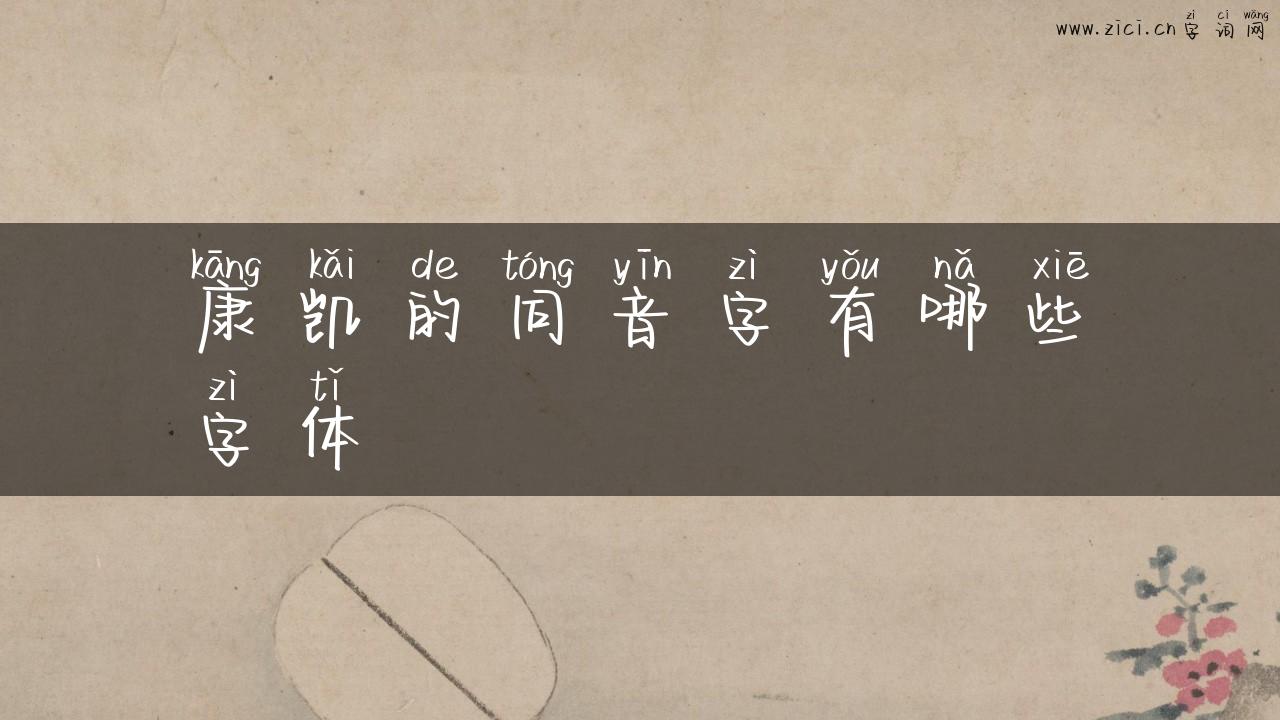 zì cí wǎng
www.zici.cn 字词网
kāng kǎi de tóng yīn zì yǒu nǎ xiē
康凯的同音字有哪些
zì tǐ
字体